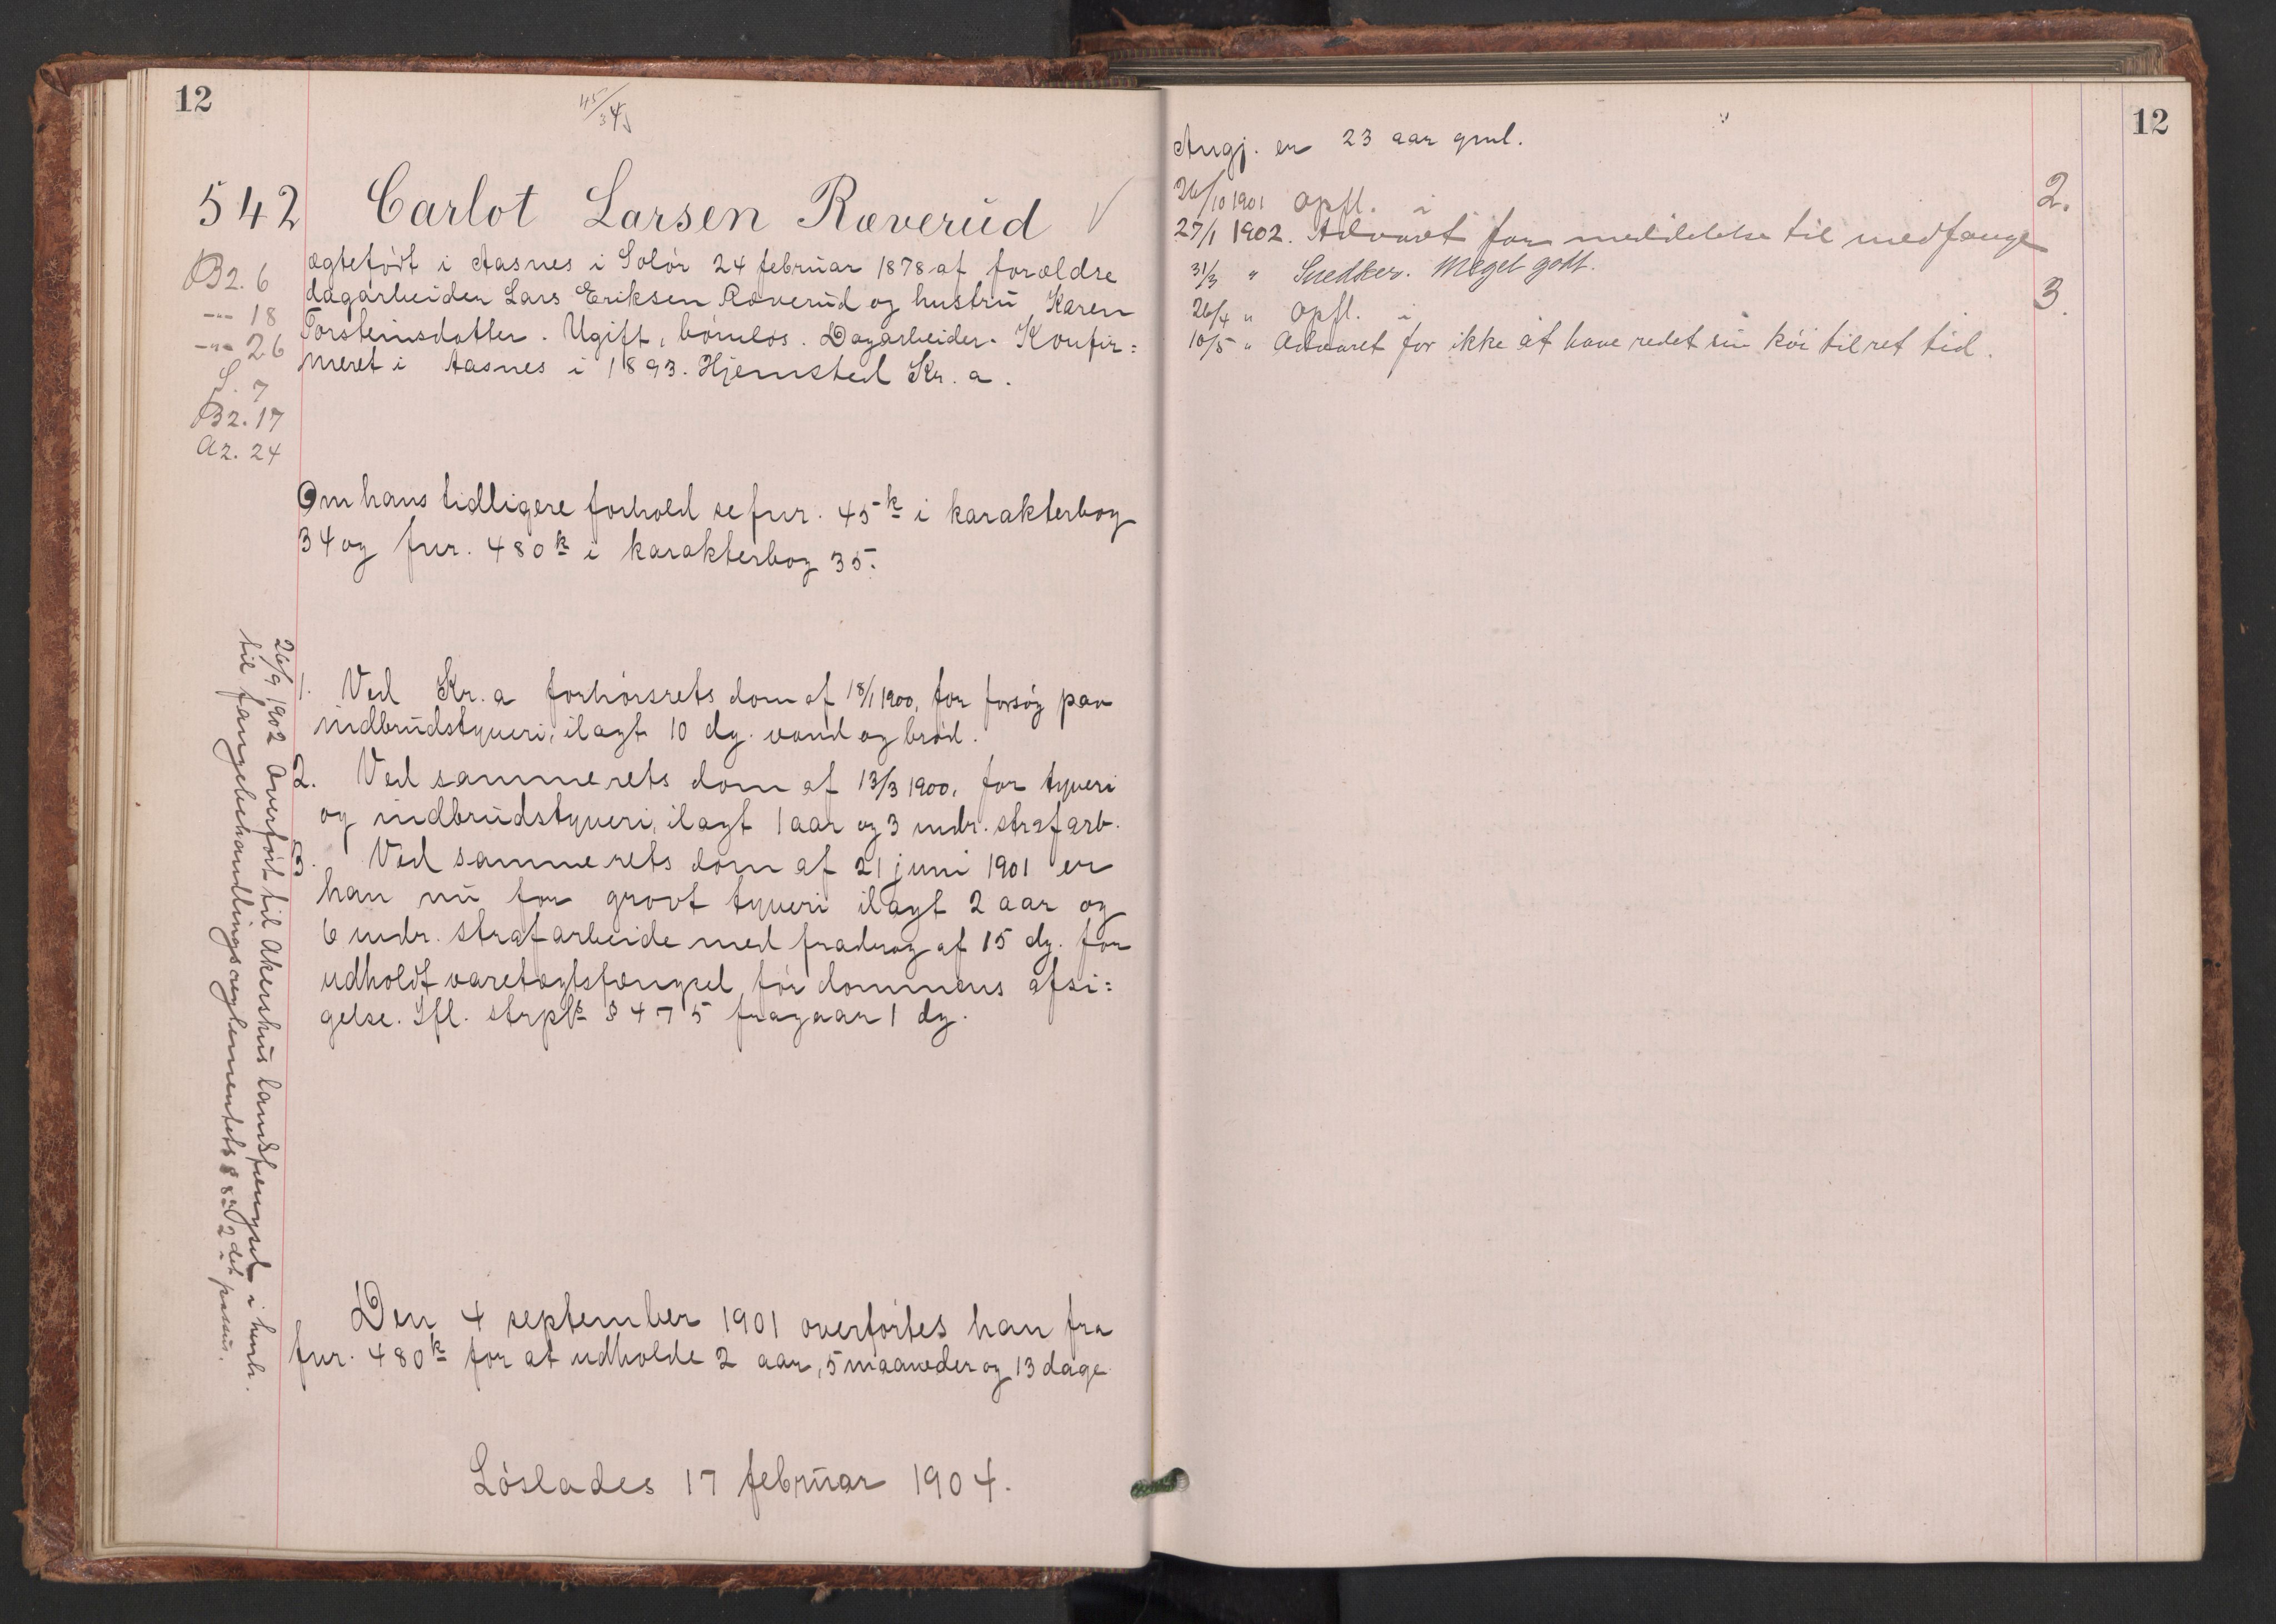 12
45/34
542 Carlot Larsen Ræverud
ægtefødt i Aasnes i Solør 24 februar 1878 af forældre
dagarbeider Lars Eriksen Ræverud og hustru Karen
Torsteinsdatter. Ugift, børnløs. Dagarbeider. Konfir=
meret i Aasnes i 1893. Hjemsted Kr.a.
B2. 6
-"- 18
-"- 26
S. 7
B2. 17
A2. 24
Om hans tidligere forhold se fnr. 45k i karakterbog
34 og fnr. 480k i karakterbog 35.
1. Ved Kr.a forhørsrets dom af 18/1 1900, for forsøg paa
indbrudstyveri, ilagt 10 dg. vand og brød.
2. Ved samme rets dom af 13/3 1900, for tyveri
og indbrudstyveri, ilagt 1 aar og 3 mdr. strafarb.
3. Ved samme rets dom af 21 juni 1901 er
han nu for grovt tyveri ilagt 2 aar og
6 mdr. strafarbeide med fradrag af 15 dg. for
udholdt varetægtsfængsel før dommens afsi=
gelse. Ifl. strpl § 475 fragaar 1 dg.
26/9 1902 Overført til Akershus landsfængsel i henh.
til fangebehandlingsreglementets § 8 2det passus.
Den 4 september 1901 overførtes han fra
fnr. 480k for at udholde 2 aar, 5 maaneder og 13 dage
Løslades 17 februar 1904.
12
Angj. er 23 aar gml.
26/10 1901 Opfl. i 2.
27/1 1902. Advaret for meddelelse til medfange
31/3 " Snedker. Meget godt.
26/4 " Opfl. i 3.
10/5 " Advaret for ikke at have redet sin køi til ret tid.